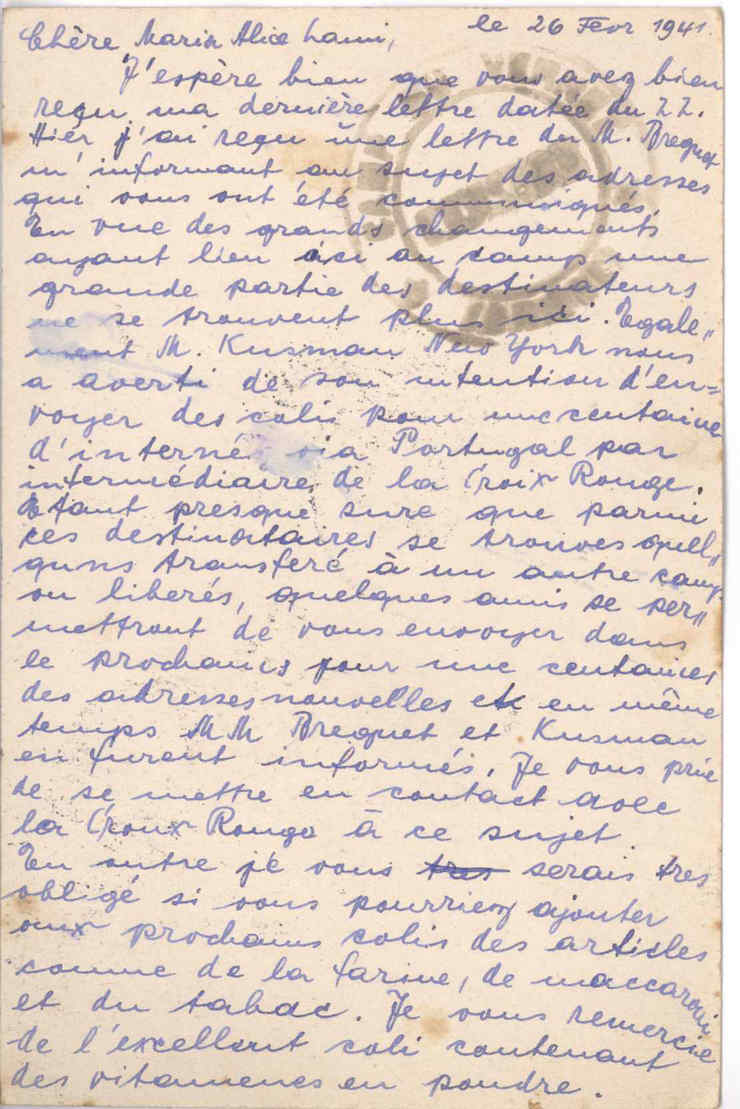 le 26 Fevr 1941.
Chère Maria Alice Lami,
J'espère bien que vous avez bien
reçu ma dernière lettre datée du 22.
Hiér j'ai reçu une lettre du M. Breguet
m'informant au sujet des adresses
qui vous ont été communiqués.
En vue des grands changements
ayant lieu ici au camp une
grande partie des destinateurs
ne se trouvent plus ici. Egale„
ment M. Kusman New York nous
a averti de son intention d'en=
voyer des colis pour une centaine
d'internés via Portugal par
intermédiaire de la Croix Rouge.
Etant presque sure que parmi
ces destinataires se trouves quell„
quns transferé à un autre camp
ou liberés, quelques amis se per„
mettront de vous envoyer dans
le prochains jour une centaines
des adresses nouvelles et en même
temps MM Breguet et Kusman
en furent informés. Je vous prie
de se mettre en contact avec
la Croix Rouge à ce sujet.
En outre je vous tres serais tres
obligé si vous pourriez ajouter
aux prochains colis des articles
comme de la farine, de maccaroni
et du tabac. Je vous remercie
de l'excellent coli contenant
des vitamenes en poudre.